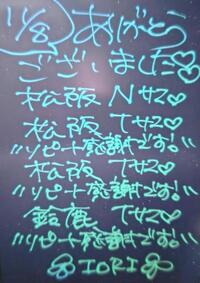 11/8 ありがとう
ございました♡
松阪 Nサマ♡
松阪 Tサマ♡
"リピート感謝です!
松阪 Tサマ♡
"リピート感謝です!
鈴鹿 Tサマ♡
"リピート感謝です!
IORI